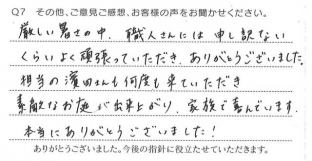 Q7 その他、ご意見ご感想、お客様の声をお聞かせください。
厳しい暑さの中、職人さんには申し訳ない
くらいよく頑張っていただき、ありがとうございました。
担当の濱田さんも何度も来ていただき
素敵なお庭が出来上がり、家族で喜んでいます。
本当にありがとうございました!
ありがとうございました。今後の指針に役立たせていただきます。